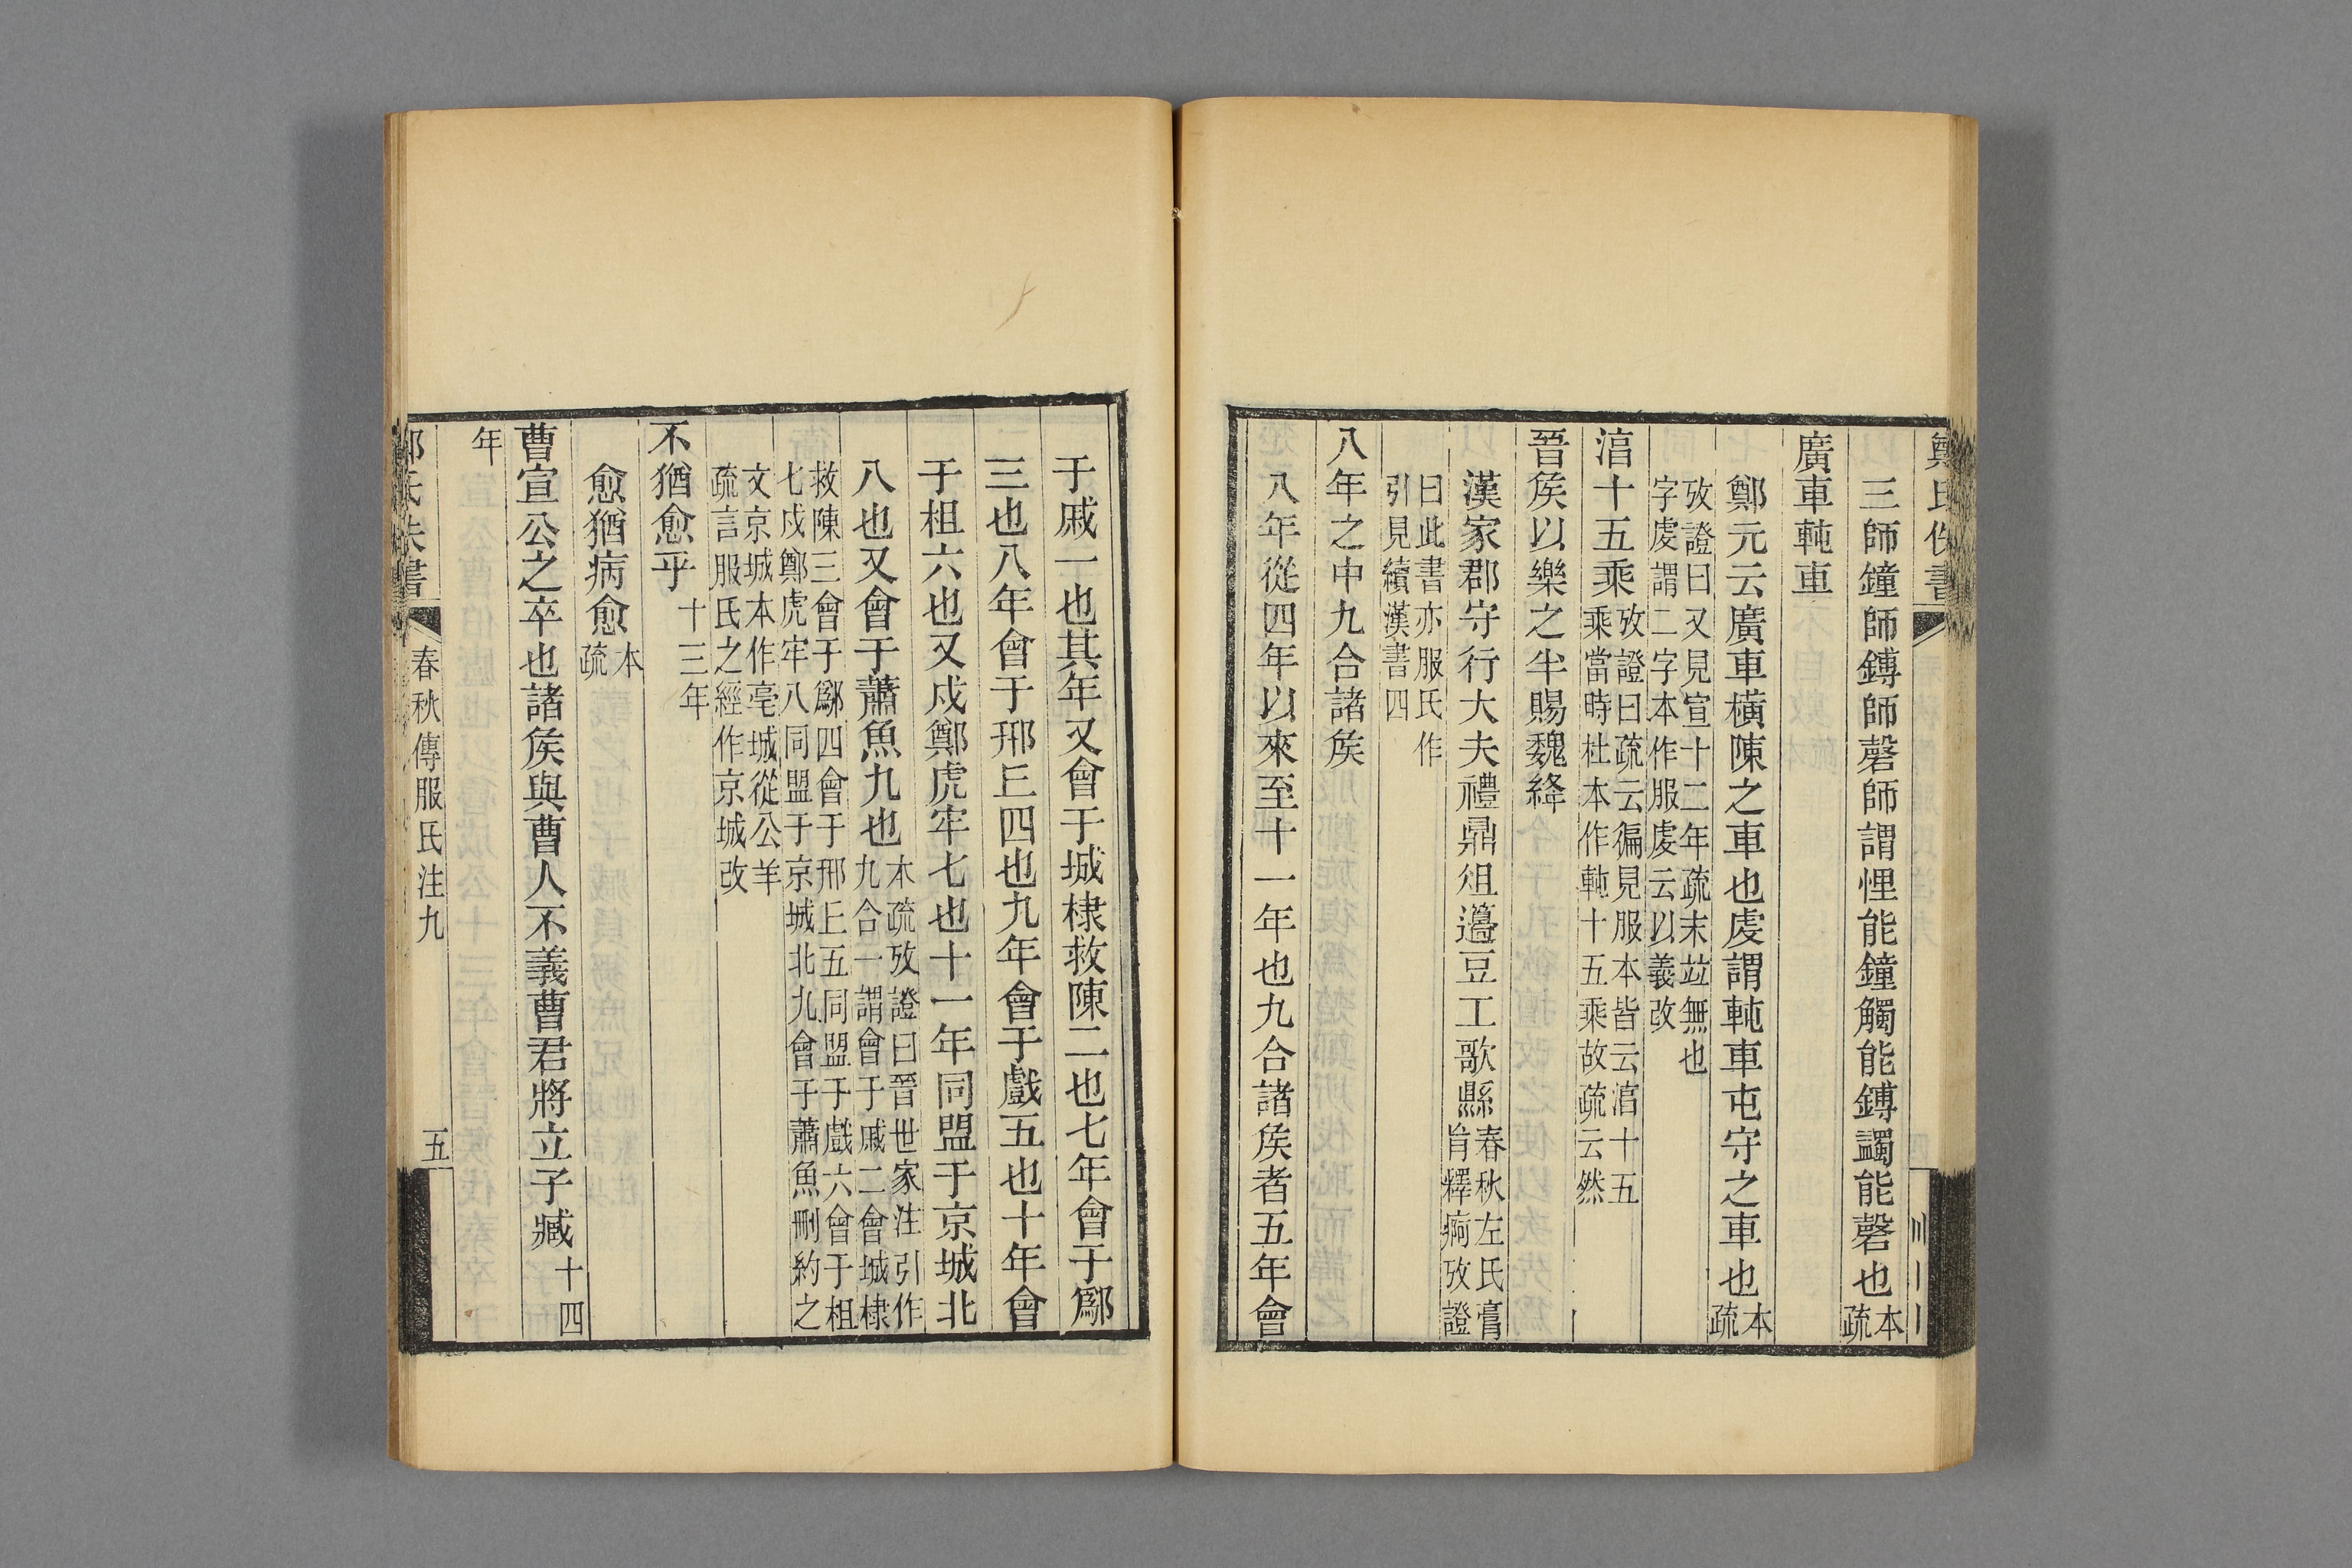 三師鐘師鎛師磬師謂悝能鐘觸能鎛蠲能磬也本疏
廣車軘車
鄭元云廣車橫陳之車也虔謂軘車屯守之車也本疏
攷證曰又見宣十二年疏末竝無也
字虔謂二字本作服虔云以義改
淳十五乘攷證曰疏云徧見服本皆云淳十五
乘當時杜本作軘十五乘故疏云然
晉矦以樂之半賜魏絳
漢家郡守行大夫禮鼎俎籩豆工歌縣春秋左氏膏
肓釋痾攷證
曰此書亦服氏作
引見續漢書四
八年之中九合諸矦
八年從四年以來至十一年也九合諸矦者五年會
于戚一也其年又會于城棣救陳二也七年會于鄬
三也八年會于邢丘四也九年會于戲五也十年會
于柤六也又戍鄭虎牢七也十一年同盟于京城北
八也又會于蕭魚九也本疏攷證曰晉世家注引作
九合一謂會于戚二會城棣
救陳三會于鄬四會于邢丘五同盟于戲六會于柤
七戍鄭虎牢八同盟于京城北九會于蕭魚刪約之
文京城本作亳城從公羊
疏言服氏之經作京城改
不猶愈乎十三年
愈猶病愈本疏
曹宣公之卒也諸矦與曹人不義曹君將立子臧十四
年
春秋傳服氏注九
五